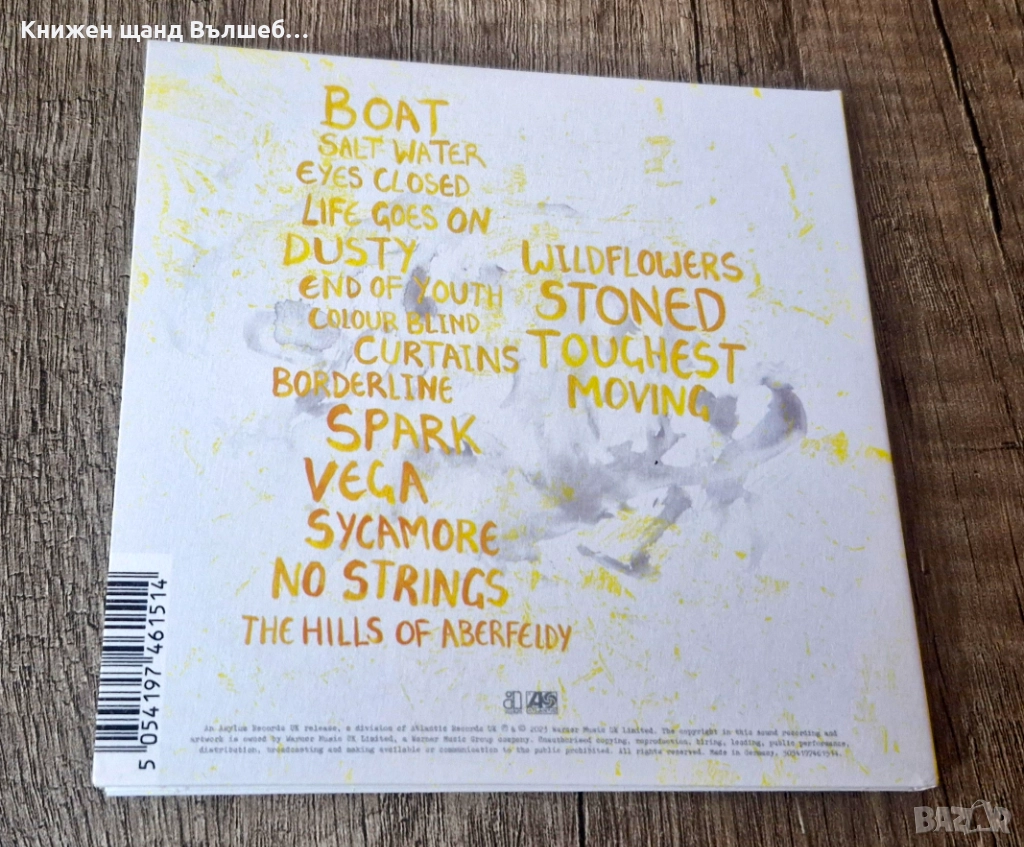 Книжен щанд Вълшеб...
BOAT
SALT WATER
EYES CLOSED
LIFE GOES ON
DUSTY
END OF YOUTH
COLOUR BLIND
CURTAINS
BORDERLINE
SPARK
VEGA
SYCAMORE
NO STRINGS
THE HILLS OF ABERFELDY
WILDFLOWERS
STONED
TOUGHEST
MOVING
5 054197 461514
An Asylum Records UK release, a division of Atlantic Records UK ℗ & © 2023 Warner Music UK Limited. The copyright in this sound recording and
artwork is owned by Warner Music UK Limited, a Warner Music Group company. Unauthorised copying, reproduction, hiring, lending, public performance,
distribution, broadcasting and making available or communication to the public prohibited. All rights reserved. Made in Germany. 5054197461514.
BAZAR